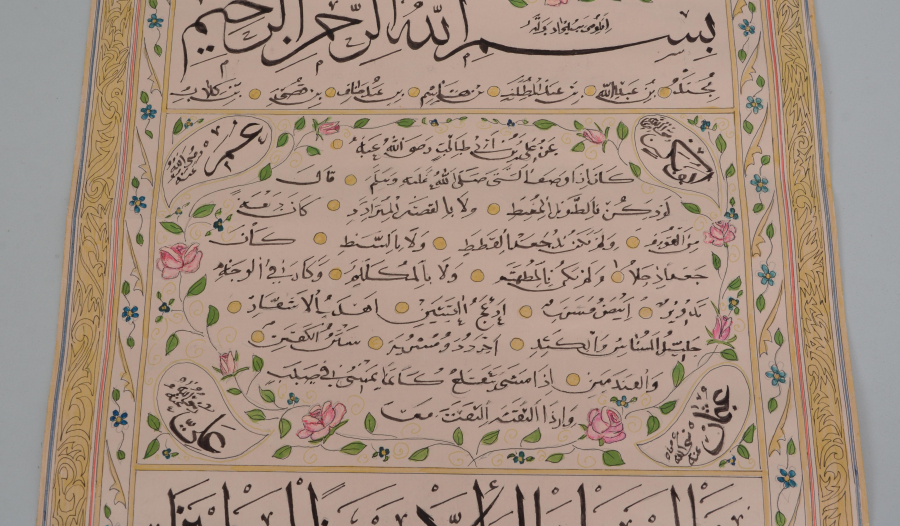 بسم الله الرحمن الرحيم
محمد بن عبد الله بن عبد المطلب بن هاشم بن عبد مناف بن قصي بن كلاب
عمر رضي الله عنه
عن علي بن ابي طالب رضى الله عنه
كان اذا وصف النبي صلى الله عليه وسلم قال
لم يكن بالطويل الممغط ولا بالقصير المتردد كان ربعة
من القوم ولم يكن بالجعد القطط ولا بالسبط كان
جعدا رجلا ولم يكن بالمطهم ولا بالمكلثم وكان في الوجه
تدوير ابيض مشرب ادعج العينين اهدب الاشفار
جليل المشاش والكتد اجرد ذو مسربة شثن الكفين
والقدمين اذا مشى تقلع كانما يمشى في صبب
واذا التفت التفت معا
عثمان رضي الله عنه
على رضي الله عنه